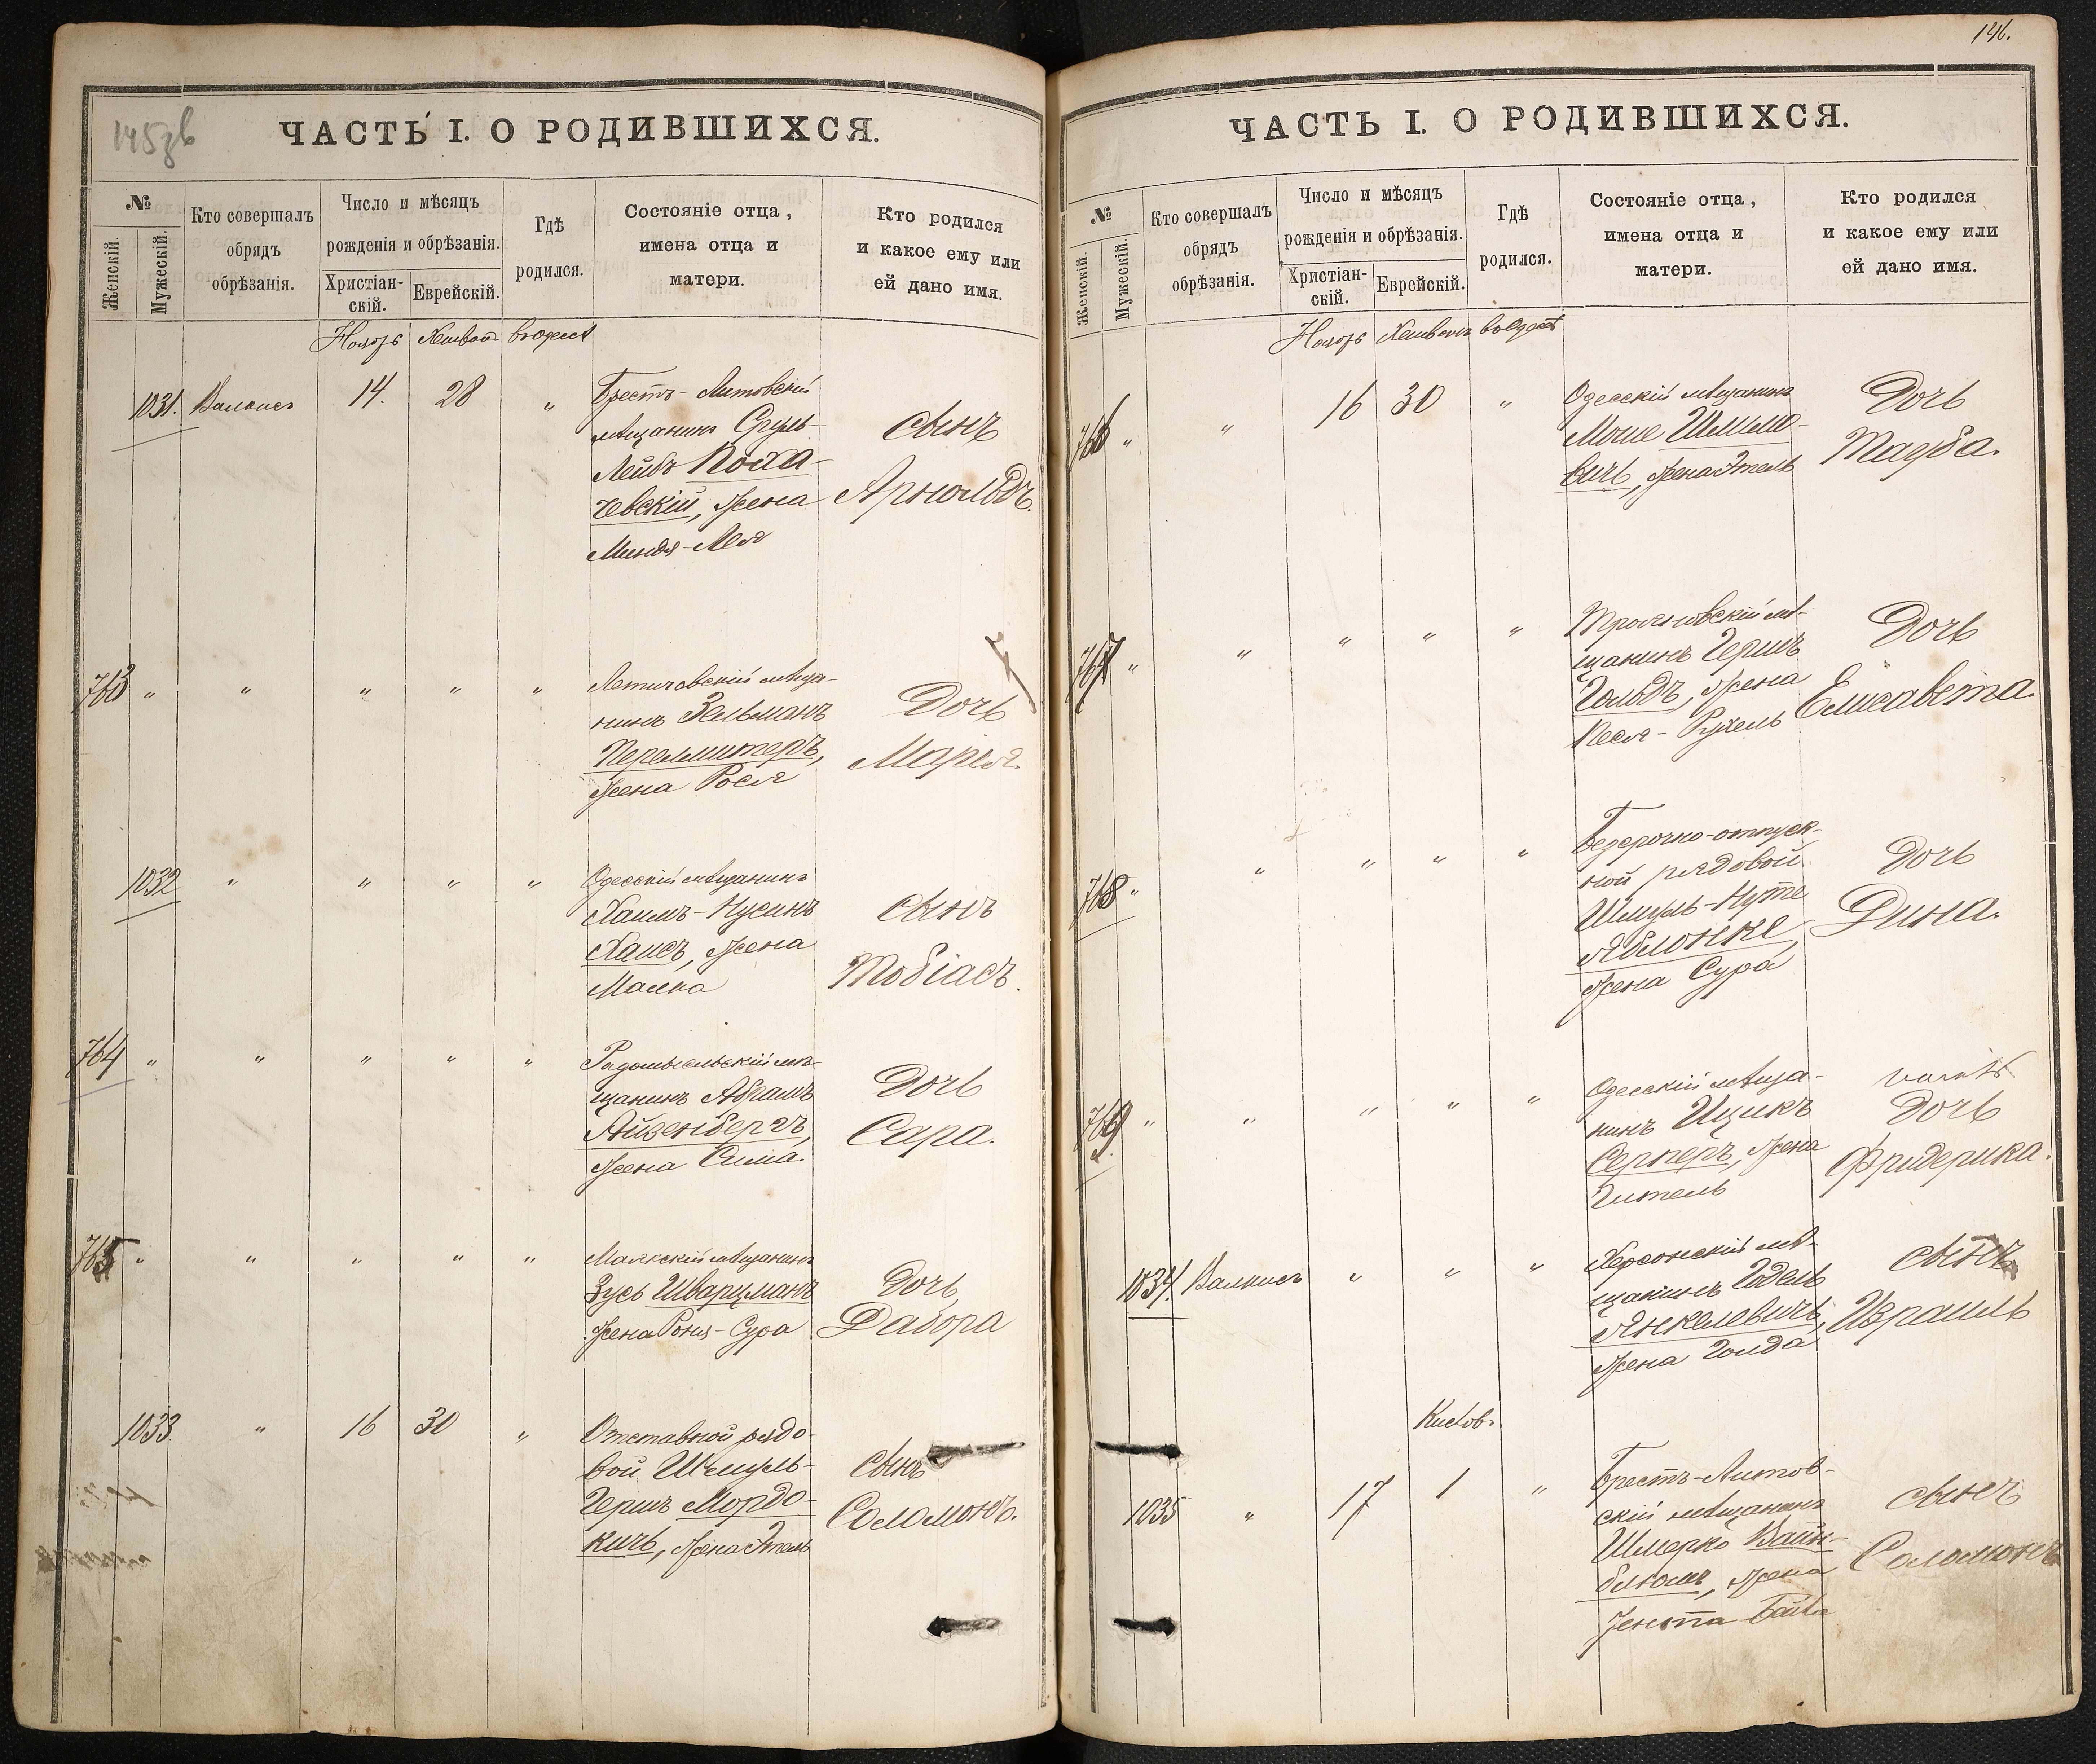 145зв
ЧАСТЬ I. О РОДИВШИХСЯ.
№
Женскій.
Мужескій.
Кто совершалъ
обрядъ
обрѣзанія.
Число и мѣсяцъ
рожденія и обрѣзанія.
Христіан-
скій.
Еврейскій.
Гдѣ
родился.
Состояніе отца,
имена отца и
матери.
Кто родился
и какое ему или
ей дано имя.
Ноябрь
1031. 14. 28 "
Брестъ-Литовскій
мѣщанинъ Сруль-
Лейбъ Коха-
чевскій, жена
Миндя-Лея
сынъ
Арнольдъ.
763 " " " " "
Летичовскій мѣща-
нинъ Зельманъ
Перельмитеръ,
жена Рося
дочь
Марія.
1032 " " " "
Одесскій мѣщанинъ
Хаимъ-Нусинъ
Хаисъ, жена
Малка
сынъ
Тобіасъ.
764 " " " " "
Радомысльскій мѣ-
щанинъ Абрамъ
Айзенбергъ,
жена Сима.
дочь
Сара.
765 " " " " "
Маякскій мѣщанинъ
Зусь Шварцманъ
жена Роня-Сура
дочь
Дабора
1033 " 16 30 "
Отставной рядо-
вой Шмуль-
Гершъ Мордо-
кичъ, жена Этель
сынъ
Соломонъ.
146.
ЧАСТЬ I. О РОДИВШИХСЯ.
№
Женскій.
Мужескій.
Кто совершалъ
обрядъ
обрѣзанія.
Число и мѣсяцъ
рожденія и обрѣзанія.
Христіан-
скій.
Еврейскій.
Гдѣ
родился.
Состояніе отца,
имена отца и
матери.
Кто родился
и какое ему или
ей дано имя.
Ноябрь
766 " " 16 30 "
Одесскій мѣщанинъ
Моше Шлимо-
вичъ, жена Этель
дочь
Тауба.
767 " " " " "
Трояновскій мѣ-
щанинъ Гершъ
Гольдъ, жена
Песя-Рухель
дочь
Елисавета
768 " " " " "
Безсрочно-отпуск-
ной рядовой
Шмуль-Нута
Яблонке,
жена Сура
дочь
Дина.
769 " " " " "
Одесскій мѣща-
нинъ Ицикъ
Серперъ, жена
Гитель
дочь
Фридерика.
1034. " " "
Херсонскій мѣ-
щанинъ Юдель
Янкелевичъ,
жена Голда
сынъ
Израиль
Кислов.
1035 " 17 1 "
Брестъ-Литов-
скій мѣщанинъ
Шмерко Вайн-
блюмъ, жена
Іента
сынъ
Соломонъ